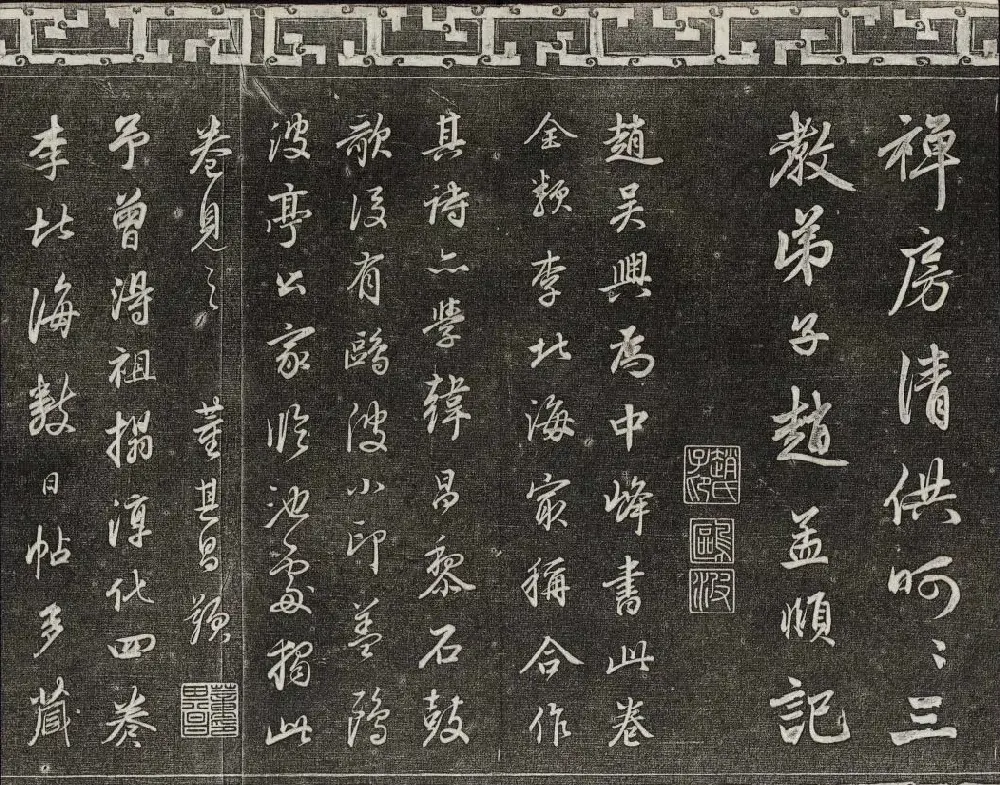 禅房清供呵〻三
教弟子趙孟頫記
趙氏子昂
鷗波
趙吳興為中峰書此卷
全類李北海最稱合作
其詩亦學韓昌黎石鼓
歌後有鷗波小印蓋鷗
波亭公家臨池處獨此
卷見之　董其昌題
予曾得祖搨淳化四卷
李北海數日帖多藏